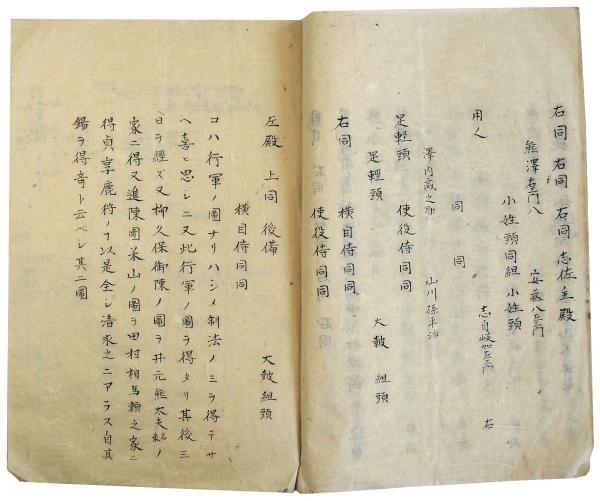 右同 右同 右同 志佐主殿
熊澤右門八 安藝八左門
小姓頭同組 小姓頭
用人 同 同 志自岐加左衛門 右
澤内蔵之助 山川孫平治
足軽頭 使役侍同同
足軽頭 大皷組頭
右同 横目侍同同
使役侍同同 右同
左殿 上同 後備 大皷組頭
横目侍同同
コハ行軍ノ圖ナリハシメ制法ノミヲ得テサ
ヘ喜ヒ思シニ又此行軍ノ圖ヲ得タリ其後三
日ヲ經ズ又柳久保御陳ノ圖ヲ井元熊太夫ノ
家ニ得又進陳圍米山ノ圖ヲ田村相馬賴之家ニ
得貞享鹿狩ノ以是全シ清求之ニアラス自其
錫ヲ得音ト云ベシ其二圖